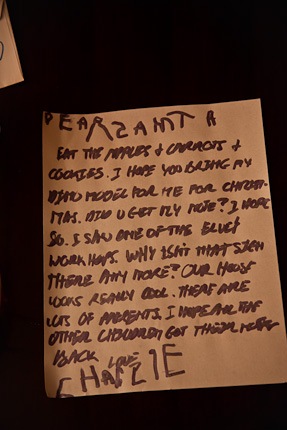 DEAR SANTA
EAT THE APPLES & CARROTS &
COOKIES. I HOPE YOU BRING MY
DINO MODEL FOR ME FOR CHRIST-
MAS. DID U GET MY NOTE? I HOPE
SO. I SAW ONE OF THE ELVES
WORKHOPS. WHY ISN'T THAT SIGN
THERE ANY MORE? OUR HOUSE
LOOKS REALLY COOL. THERE ARE
LOTS OF PRESENTS. I HOPE ALL THE
OTHER CHILDREN GOT THEIR NOTES
BACK LOVE
CHARLIE